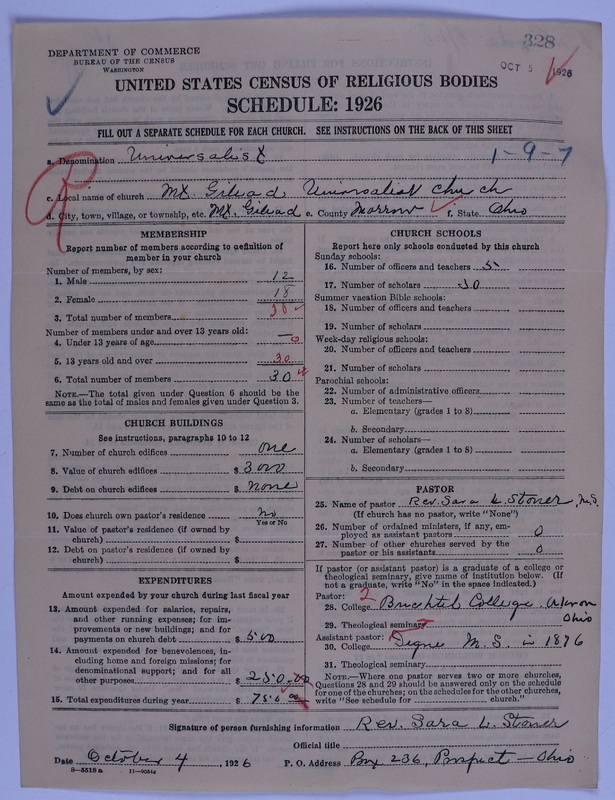 328
DEPARTMENT OF COMMERCE
BUREAU OF THE CENSUS
WASHINGTON
OCT 5 1926
UNITED STATES CENSUS OF RELIGIOUS BODIES
SCHEDULE: 1926
FILL OUT A SEPARATE SCHEDULE FOR EACH CHURCH. SEE INSTRUCTIONS ON THE BACK OF THIS SHEET
a. Denomination Universalist 1-9-7
c. Local name of church Mt. Gilead Universalist church
d. City, town, village, or township, etc. Mt. Gilead e. County Morrow f. State Ohio
MEMBERSHIP
Report number of members according to definition of
member in your church
Number of members, by sex:
1. Male 12
2. Female 18
3. Total number of members 30
Number of members under and over 13 years old:
4. Under 13 years of age — 0
5. 13 years old and over 30
6. Total number of members 30
NOTE.—The total given under Question 6 should be
same as the total of males and females given under Question 3.
CHURCH BUILDINGS
See instructions, paragraphs 10 to 12
7. Number of church edifices one
8. Value of church edifices $ 3000
9. Debt on church edifices $ none
10. Does church own pastor's residence No
Yes or No
11. Value of pastor's residence (if owned by
church) $
12. Debt on pastor's residence (if owned by
church) $
EXPENDITURES
Amount expended by your church during last fiscal year
13. Amount expended for salaries, repairs,
and other running expenses; for im-
provements or new buildings; and for
payments on church debt $ 500
14. Amount expended for benevolences, in-
cluding home and foreign missions; for
denominational support; and for all
other purposes $ 250.00
15. Total expenditures during year $ 750 00
CHURCH SCHOOLS
Report here only schools conducted by this church
Sunday schools:
16. Number of officers and teachers 5
17. Number of scholars 30
Summer vacation Bible schools:
18. Number of officers and teachers
19. Number of scholars
Week-day religious schools:
20. Number of officers and teachers
21. Number of scholars
Parochial schools:
22. Number of administrative officers
23. Number of teachers—
a. Elementary (grades 1 to 8)
b. Secondary
24. Number of scholars—
a. Elementary (grades 1 to 8)
b. Secondary
PASTOR
25. Name of pastor Rev. Sara L. Stoner, M.S.
(If church has no pastor, write "None")
26. Number of ordained ministers, if any, em-
ployed as assistant pastors 0
27. Number of other churches served by the
pastor or his assistants 0
If pastor (or assistant pastor) is a graduate of a college or
theological seminary, give name of institution below. (If
not a graduate, write "No" in the space indicated.)
Pastor: 2
28. College Buchtel College. Akron
Ohio
29. Theological seminary
Assistant pastor:
30. College M.S. in 1896
31. Theological seminary
NOTE.—Where one pastor serves two or more churches,
Questions 28 and 29 should be answered only on the schedule
for one of the churches; on the schedules for the other churches,
write "See schedule for church."
Signature of person furnishing information Rev. Sara L. Stoner
Official title
Date October 4, 1926 P. O. Address Box 236, Prospect — Ohio
8—5518a 11—9034